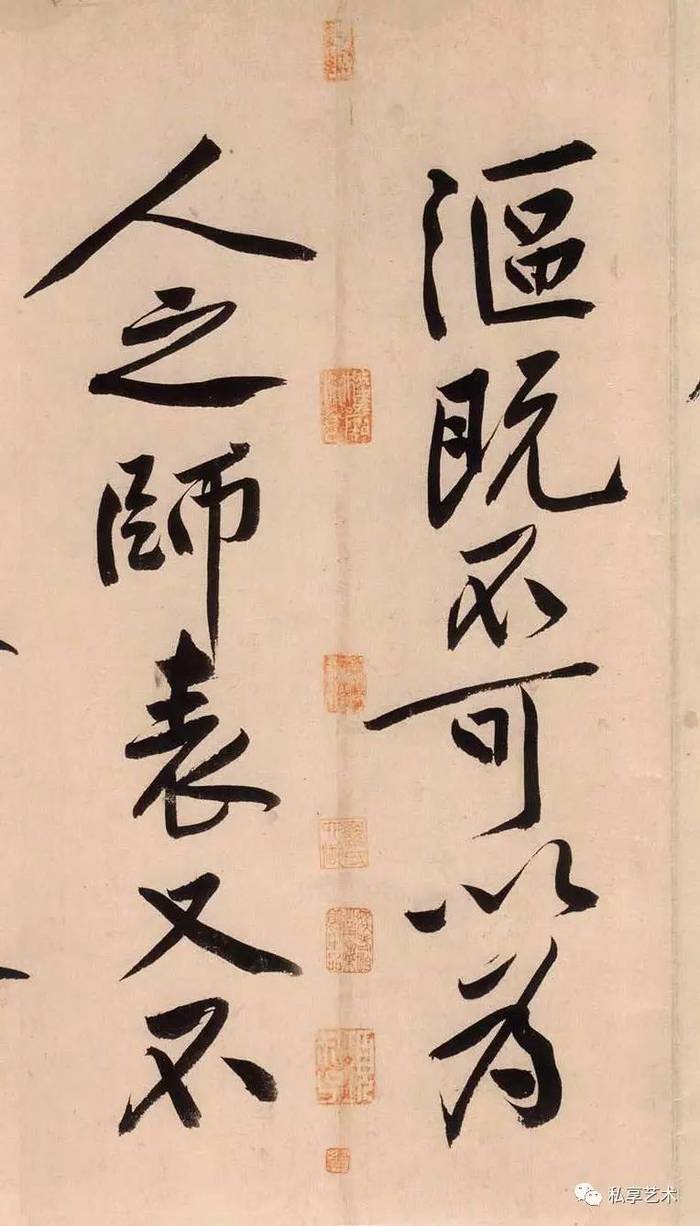 漚既不可以为
人之師表又不
私享艺术